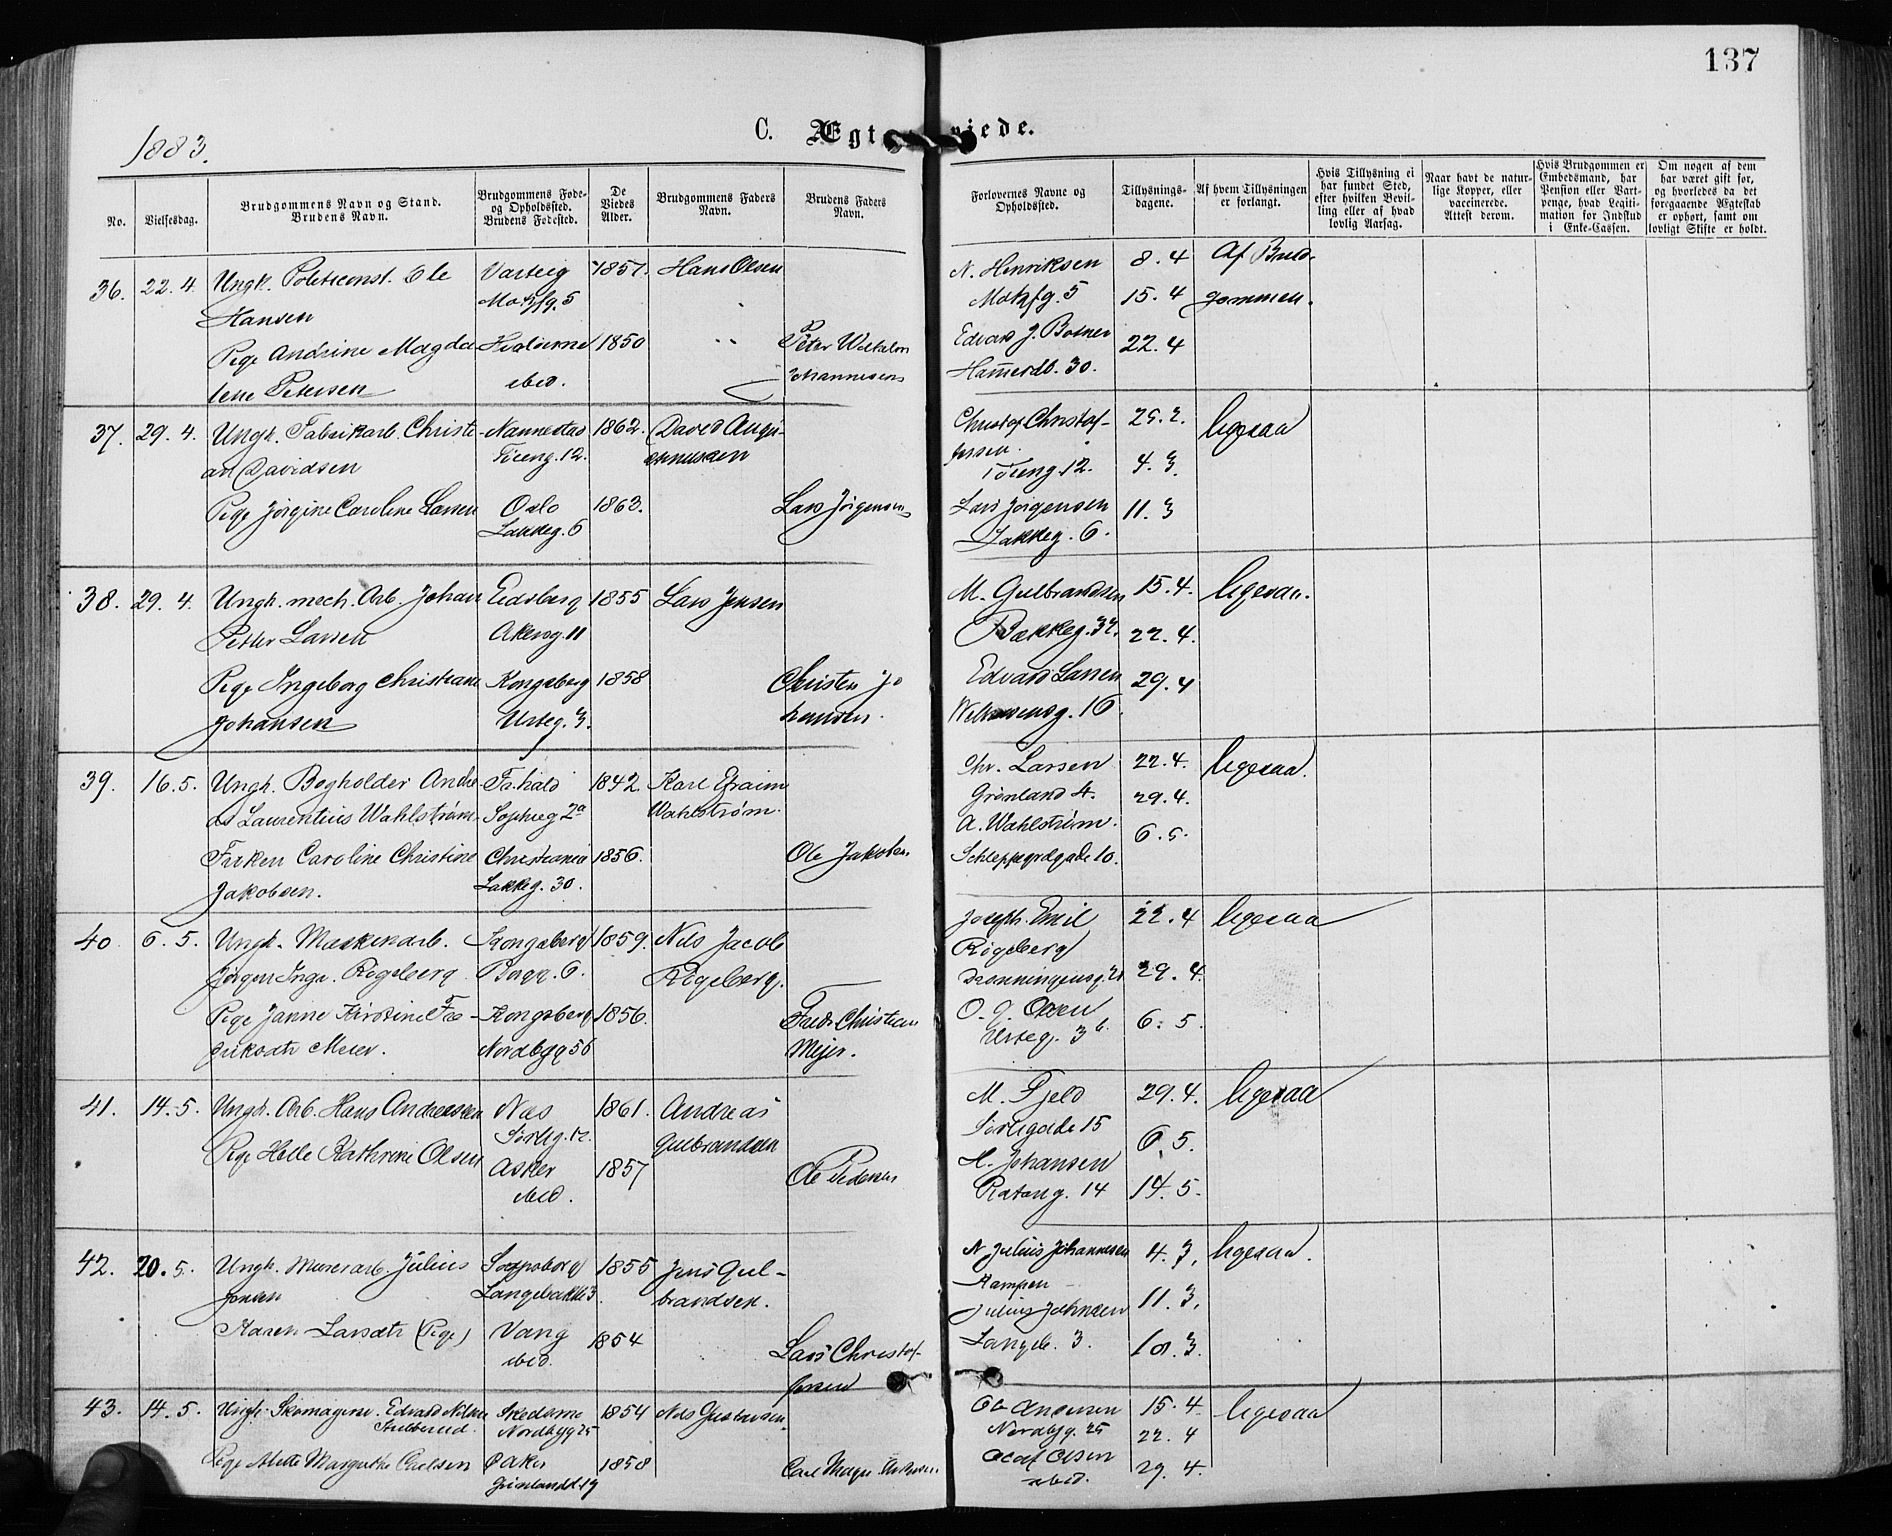 137
1883.
C. Ægt viede.
No.
Vielsesdag.
Brudgommens Navn og Stand.
Brudens Navn.
Brudgommens Føde-
og Opholdssted.
Brudens Fødested.
De
Viedes
Alder.
Brudgommens Faders
Navn.
Brudens Faders
Navn.
Forlovernes Navne og
Opholdssted.
Tillysnings-
dagene.
Af hvem Tillysningen
er forlangt.
Hvis Tillysning ei
har fundet Sted,
efter hvilken Bevil-
ling eller af hvad
lovlig Aarsag.
Naar havt de natur-
lige Kopper, eller
vaccinerede.
Attest derom.
Hvis Brudgommen er
Embedsmand, har
Pension eller Vart-
penge, hvad Legiti-
mation for Indskud
i Enke-Cassen.
Om nogen af dem
har været gift før,
og hvorledes da det
foregaaende Ægteskab
er ophørt, samt om
lovligt Skifte er holdt.
36. 22. 4. Ungk. Politiconst. Ole
Hansen
Varteig
1857. Hans Olsen
Pige Andrine Magda
lene Petersen
ibid.
1850
Peter
Johannesen
N. Henriksen
5
Edvard J.
Hamersb. 30.
8. 4
15. 4
22. 4
Af Brud-
gommen.
37. 29. 4. Ungk. Fabrikarb. Christi
an Davidsen
Nannestad
Tøieng. 12.
1862. David
Pige Jørgine Caroline Larsen
Oslo
Lakkeg. 6
1863.
Lars Jørgensen
Christof Christof-
fersen
Tøieng. 12.
Lars Jørgensen
Lakkeg. 6.
25. 2.
4. 3.
11. 3
ligesaa
38. 29. 4. Ungk. mech. Arb. Johan
Petter Larsen
Eidsberg
Akersg. 11
1855 Lars Jensen
Pige Ingeborg Christiane
Johansen
Kongsberg
Urteg. 3.
1858
Christen Jo
hansen.
M. Gulbrandsen
Bakkeg.
Edvard Larsen
16.
15. 4.
22. 4.
29. 4
ligesaa.
39. 16. 5. Ungk. Bogholder Andre
as Laurentius Wahlstrøm
Frhald
Sophieg 2a
1842. Karl Efraim
Wahlstrøm.
Frøken Caroline Christine
Jakobsen.
Christiania
Lakkeg. 30.
1856.
Ole Jakobsen
Chr. Larsen
Grønland 4.
A. Wahlstrøm.
Schleppegrelgade 10.
22. 4.
29. 4.
6. 5.
ligesaa.
40. 6. 5. Ungk. Maskinarb.
Jørgen Inga. Rigeberg
Kongsberg
6.
1859. Nils Jacob
Rigeberg.
Pige Janne Kirstine Fre-
driksdtr Meier.
Kongsberg
Nordbyg 56
1856.
Fredr Christian
Mejer.
Joseph Emil
Rigeberg
O. J. Olsen
Urteg. 3 b.
22. 4
29. 4.
6. 5.
ligesaa
41. 14. 5. Ungk. Arb. Hans Andreassen
Næs
Sørlig. 12.
1861. Andreas
Gulbrandsen
Pige Helle Kathrine Olsen
Asker
ibid.
1857
Ole Pedersen
M. Fjeld
Sørligade 15
H. Johansen
14
29. 4.
6. 5.
14. 5.
ligesaa
42. 20. 5. Ungk. Murerarb. Julius
Jensen
Sarpsborg
1855 Jens Gul-
brandsen.
Karen Larsdtr (Pige)
Vang
ibid.
1854
Lars Christof-
fersen
N. Julius Johannesen
Kampen
Julius Johnsen
Langlb. 3.
4. 3.
11. 3.
18. 3.
ligesaa.
43. 14. 5. Ungk. Skomagersv. Edvard Nilsen
Skedsmo
Nordbyg 25
1854 Nils Gustavsen
Pige Alette Margrethe Carlsen
Ø Aker
Grønlandsl. 19
1858
Carl Magn.
Ole Andersen
Nordbyg. 25
Olaf Olsen
ibid.
15. 4.
22. 4
29. 4.
ligesaa